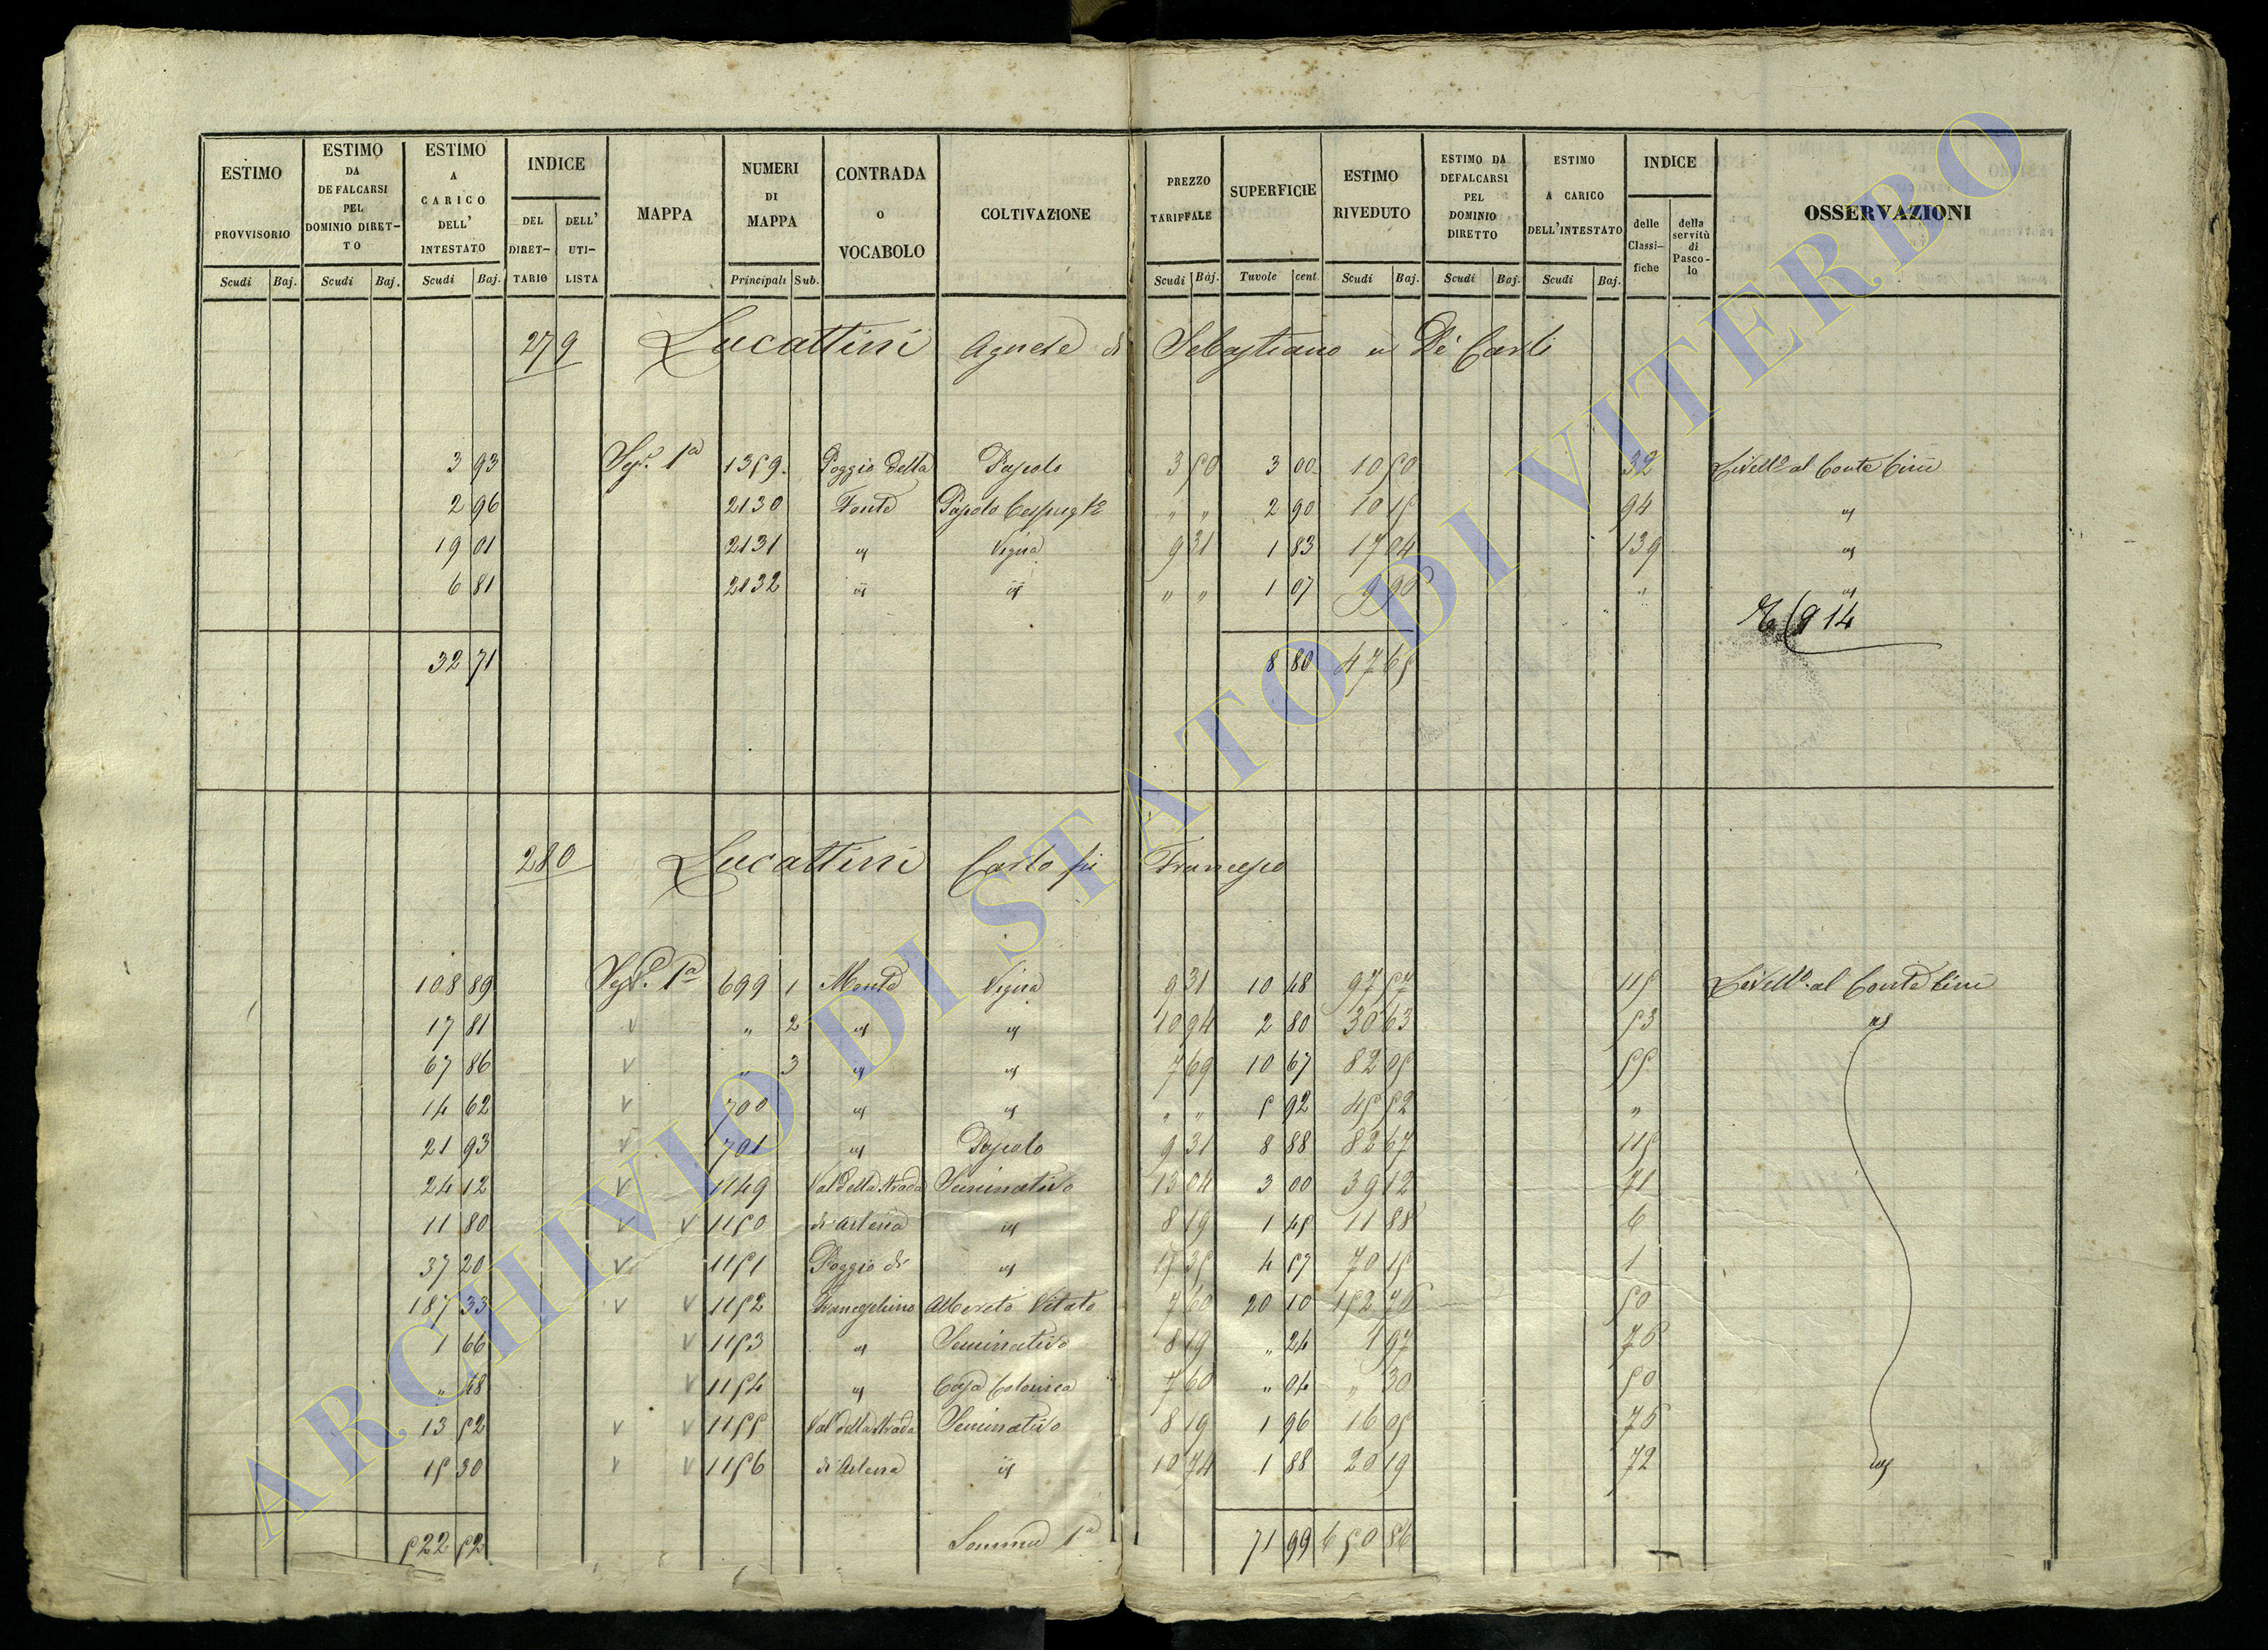 ESTIMO PROVVISORIO Scudi Baj.
ESTIMO DA DEFALCARSI PEL DOMINIO DIRET-TO Scudi Baj.
ESTIMO A CARICO DELL' INTESTATO Scudi Baj.
INDICE DEL DIRET-TARIO DELL' UTI-LISTA
MAPPA
NUMERI DI MAPPA Principali Sub.
CONTRADA O VOCABOLO
COLTIVAZIONE
PREZZO TARIFFALE Scudi Baj.
SUPERFICIE Tuvole cent.
ESTIMO RIVEDUTO Scudi Baj.
ESTIMO DA DEFALCARSI PEL DOMINIO DIRETTO Scudi Baj.
ESTIMO A CARICO DELL'INTESTATO Scudi Baj.
INDICE delle Classi-fiche della servitù di Pasco-lo
OSSERVAZIONI
279 Lucattini Agnese di Sebastiano in De Carli
3 93 Sez.e 1a 1359. Poggio della Pascolo 3 50 3 00 10 50 32 Livell.o al Conte Cini
2 96 2130 Fonte Pascolo Cespugl.o " " 2 90 10 15 94 id
19 01 2131 id Vigna 9 31 1 83 17 04 139 id
6 81 2132 id id " " 1 07 9 96 " id
914
32 71 8 80 47 65
280 Lucattini Carlo fu Francesco
108 89 Sez.e 1a 699 1 Monte Vigna 9 31 10 48 97 57 115 Livell.o al Conte Cini
17 81 v " 2 id id 10 94 2 80 30 63 53 id
67 86 v " 3 id id 7 69 10 67 82 05 55
14 62 v 700 id id " " 5 92 45 52 "
21 93 v 701 id Pascolo 9 31 8 88 82 67 115
24 12 v 1149 Val della Strada Seminativo 13 04 3 00 39 12 71
11 80 v v 1150 di Artena id 8 19 1 45 11 88 6
37 20 v 1151 Poggio di id 15 35 4 57 70 15 1
187 33 v v 1152 Franceschino Alborato Vitato 7 60 20 10 152 76 50
1 66 v 1153 id Seminativo 8 19 " 24 1 97 76
" 48 v 1154 id Casa Colonica 7 60 " 04 " 30 50
13 52 v v 1155 Val della Strada Seminativo 8 19 1 96 16 05 76
15 30 v v 1156 di Artena id 10 74 1 88 20 19 72 id
522 52 Somma 1a 71 99 650 86
ARCHIVIO DI STATO DI VITERBO